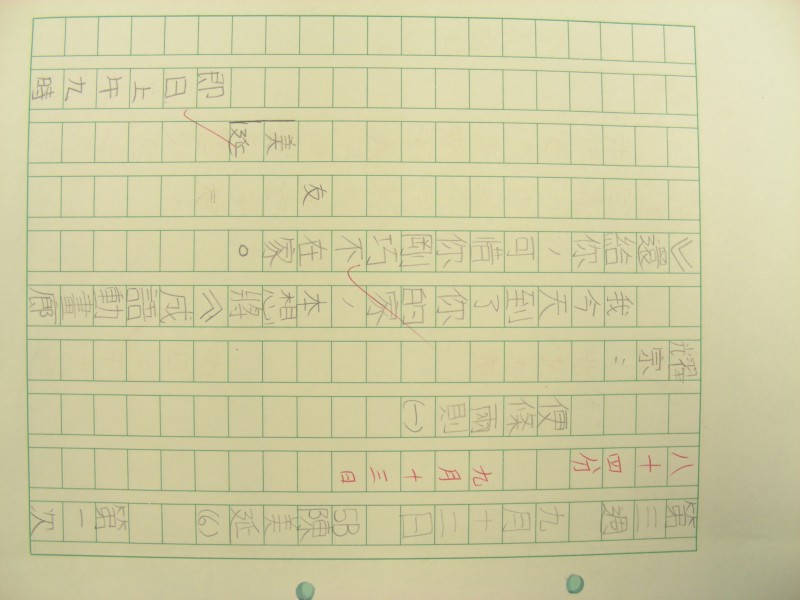 第三週 九月十二日 5B 陳美延 (6) 第一次
八十四分 九月十三日
便條兩則(一)
耀宗：
我今天到了你的家，本想將《成語動畫廊
》還給你，可惜你剛巧不在家。
友
美延
即日上午九時